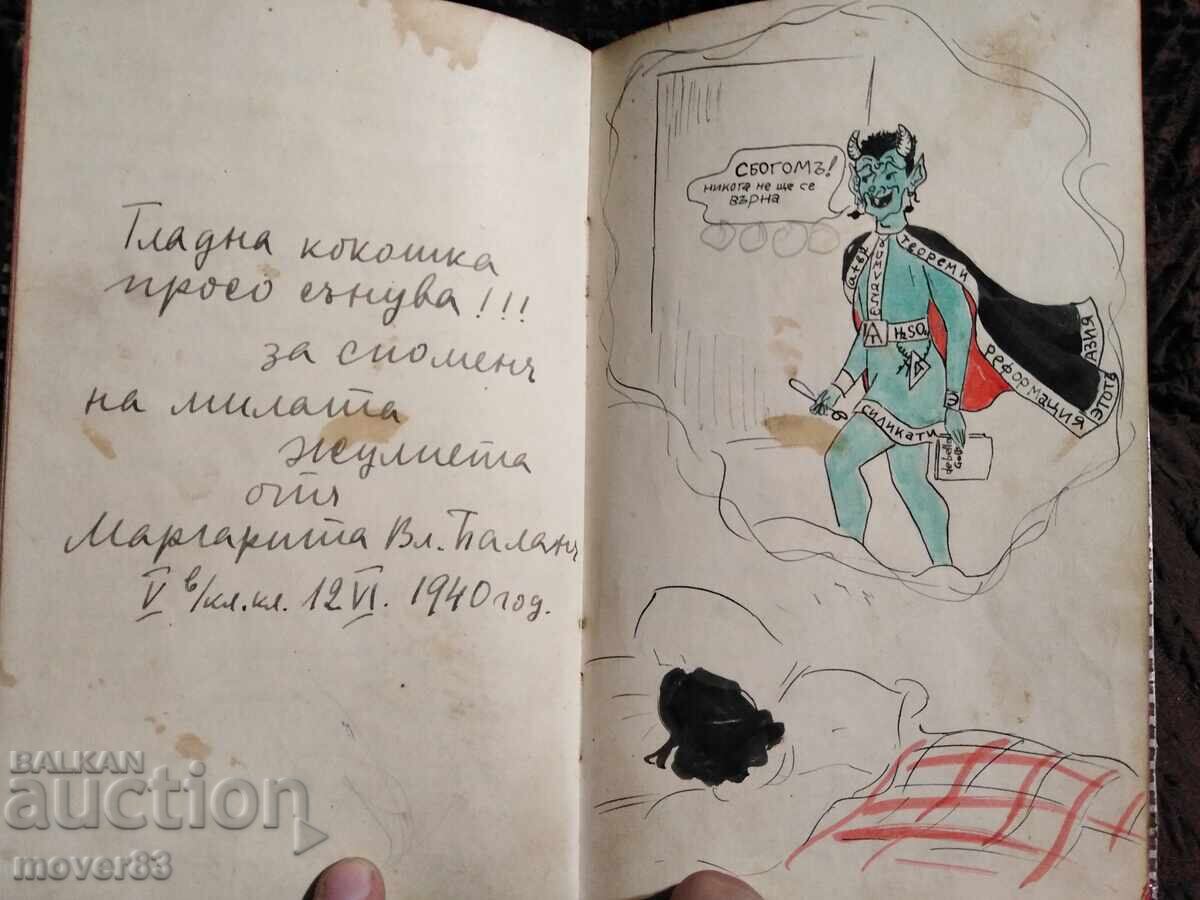 Гладна кокошка
просо сънува!!!
за споменъ
на милата
Жулиета
отъ
Маргарита Вл. Баланъ
V в/кл.кл. 12 VI. 1940 год.
СБОГОМЪ!
никога не ще се
върна
теореми
H₂SO₄
силикати
реформация
Азия
этотъ
de bello
BALKAN
auction
mover83